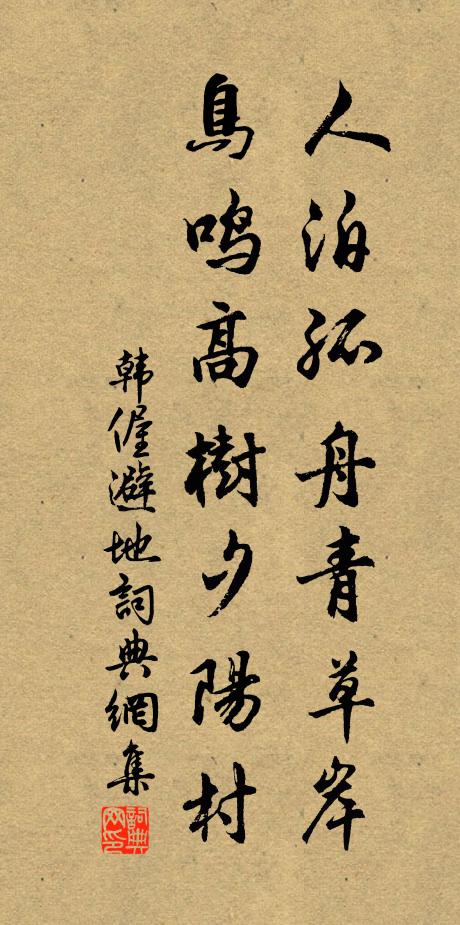 人泊孤舟青草岸
鳥鳴高樹夕陽村
韩偓避地詞典網集
詞典网印